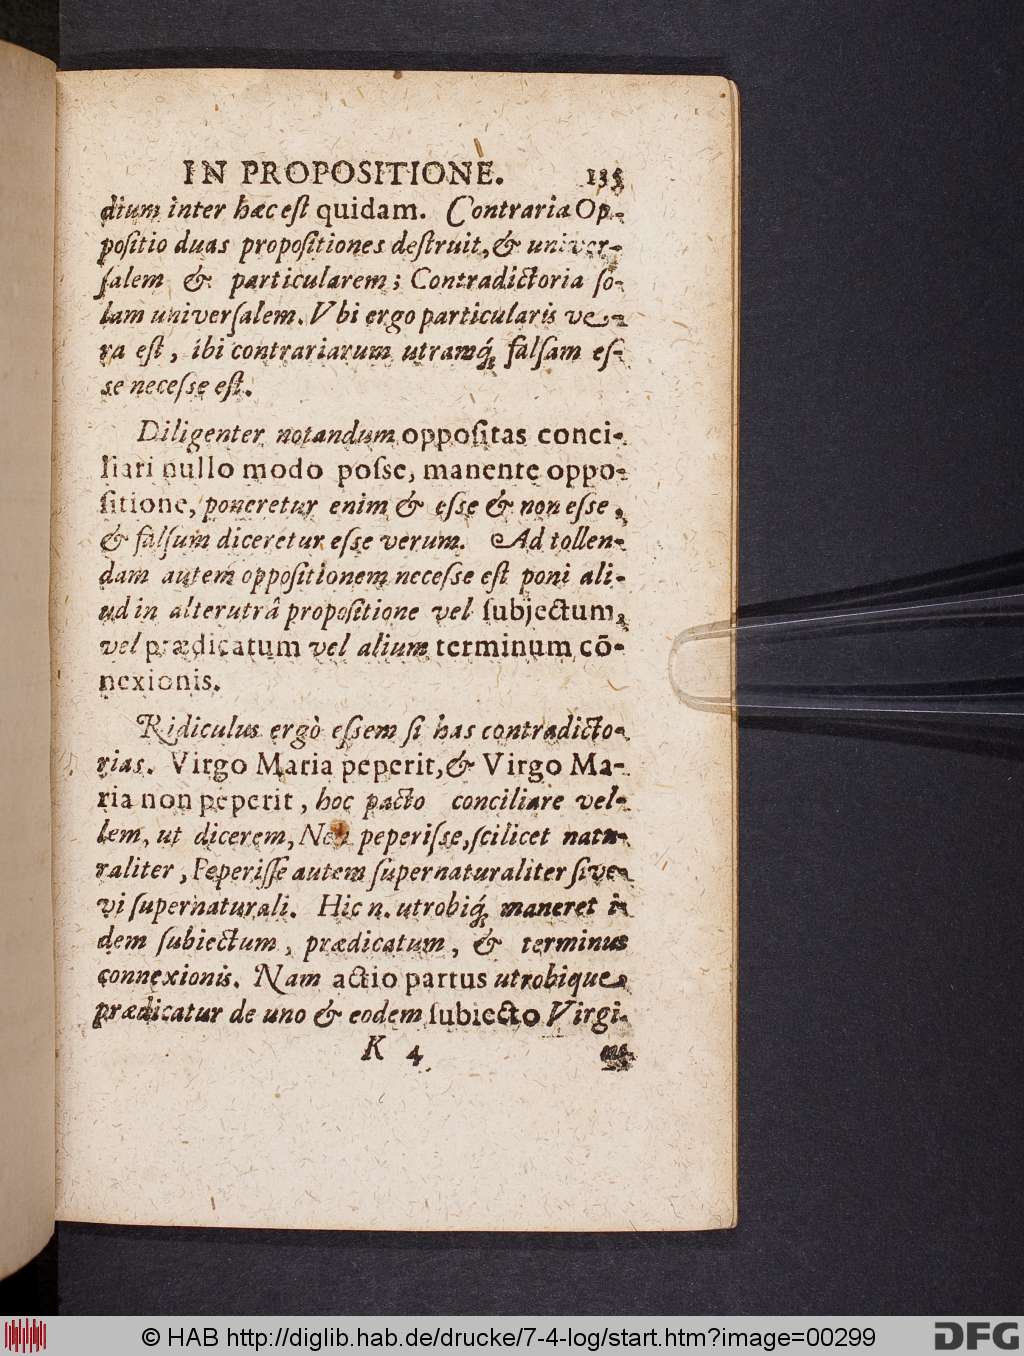 IN PROPOSITIONE. 135
dium inter hæc eſt quidam. Contraria Op-
poſitio duas propoſitiones deſtruit, & univer-
ſalem & particularem; Contradictoria ſo-
lam univerſalem. Vbi ergo particularis ve-
ra eſt, ibi contrariarum utramq́; falſam eſ-
se neceſſe eſt.
Diligenter notandum oppoſitas conci-
liari nullo modo poſse, manente oppo-
ſitione, poneretur enim & eſse & non eſse,
& falſum diceretur eſse verum. Ad tollen-
dam autem oppoſitionem neceſse eſt poni ali-
ud in alterutrâ propoſitione vel ſubjectum,
vel prædicatum vel alium terminum cõ-
nexionis.
Ridiculus ergò eſsem ſi has contradicto-
rias. Virgo Maria peperit, & Virgo Ma-
ria non peperit, hoc pacto conciliare vel-
lem, ut dicerem, Non peperiſse, ſcilicet natu-
raliter, Peperiſſe autem ſupernaturaliter ſive
vi ſupernaturali. Hic n. utrobiq́; maneret i-
dem ſubiectum, prædicatum, & terminus
connexionis. Nam actio partus utrobique
prædicatur de uno & eodem ſubiecto Virgi-
K 4 ne
© HAB http://diglib.hab.de/drucke/7-4-log/start.htm?image=00299
DFG